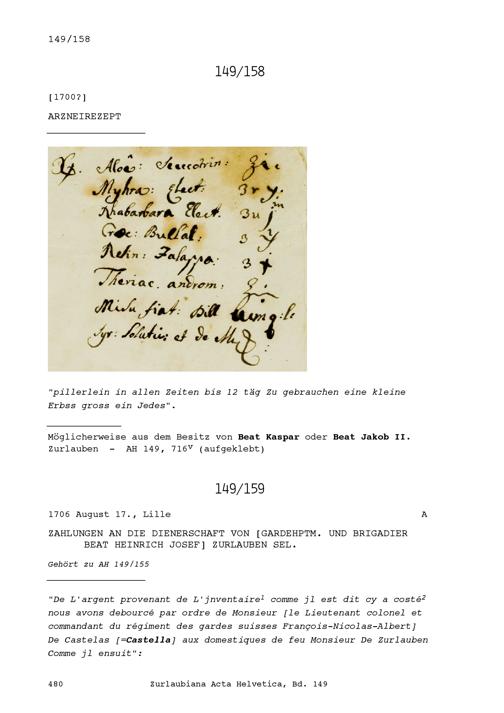 149/158
149/158
[1700?]
ARZNEIREZEPT
Rp. Aloê: Succotrin: ʒi
Myhra: Elect: 3
Rhabarbara Elect. 3
Croc:
Resin: Jalappa: 3
Theriac. androm:
Misu fiat: Pill
Syr: Solutiv: et de
"pillerlein in allen Zeiten bis 12 täg Zu gebrauchen eine kleine
Erbss gross ein Jedes".
Möglicherweise aus dem Besitz von Beat Kaspar oder Beat Jakob II.
Zurlauben - AH 149, 716v (aufgeklebt)
149/159
1706 August 17., Lille A
ZAHLUNGEN AN DIE DIENERSCHAFT VON [GARDEHPTM. UND BRIGADIER
BEAT HEINRICH JOSEF] ZURLAUBEN SEL.
Gehört zu AH 149/155
"De L'argent provenant de L'jnventaire1 comme jl est dit cy a costé2
nous avons debourcé par ordre de Monsieur [le Lieutenant colonel et
commandant du régiment des gardes suisses François-Nicolas-Albert]
De Castelas [=Castella] aux domestiques de feu Monsieur De Zurlauben
Comme jl ensuit":
480 Zurlaubiana Acta Helvetica, Bd. 149